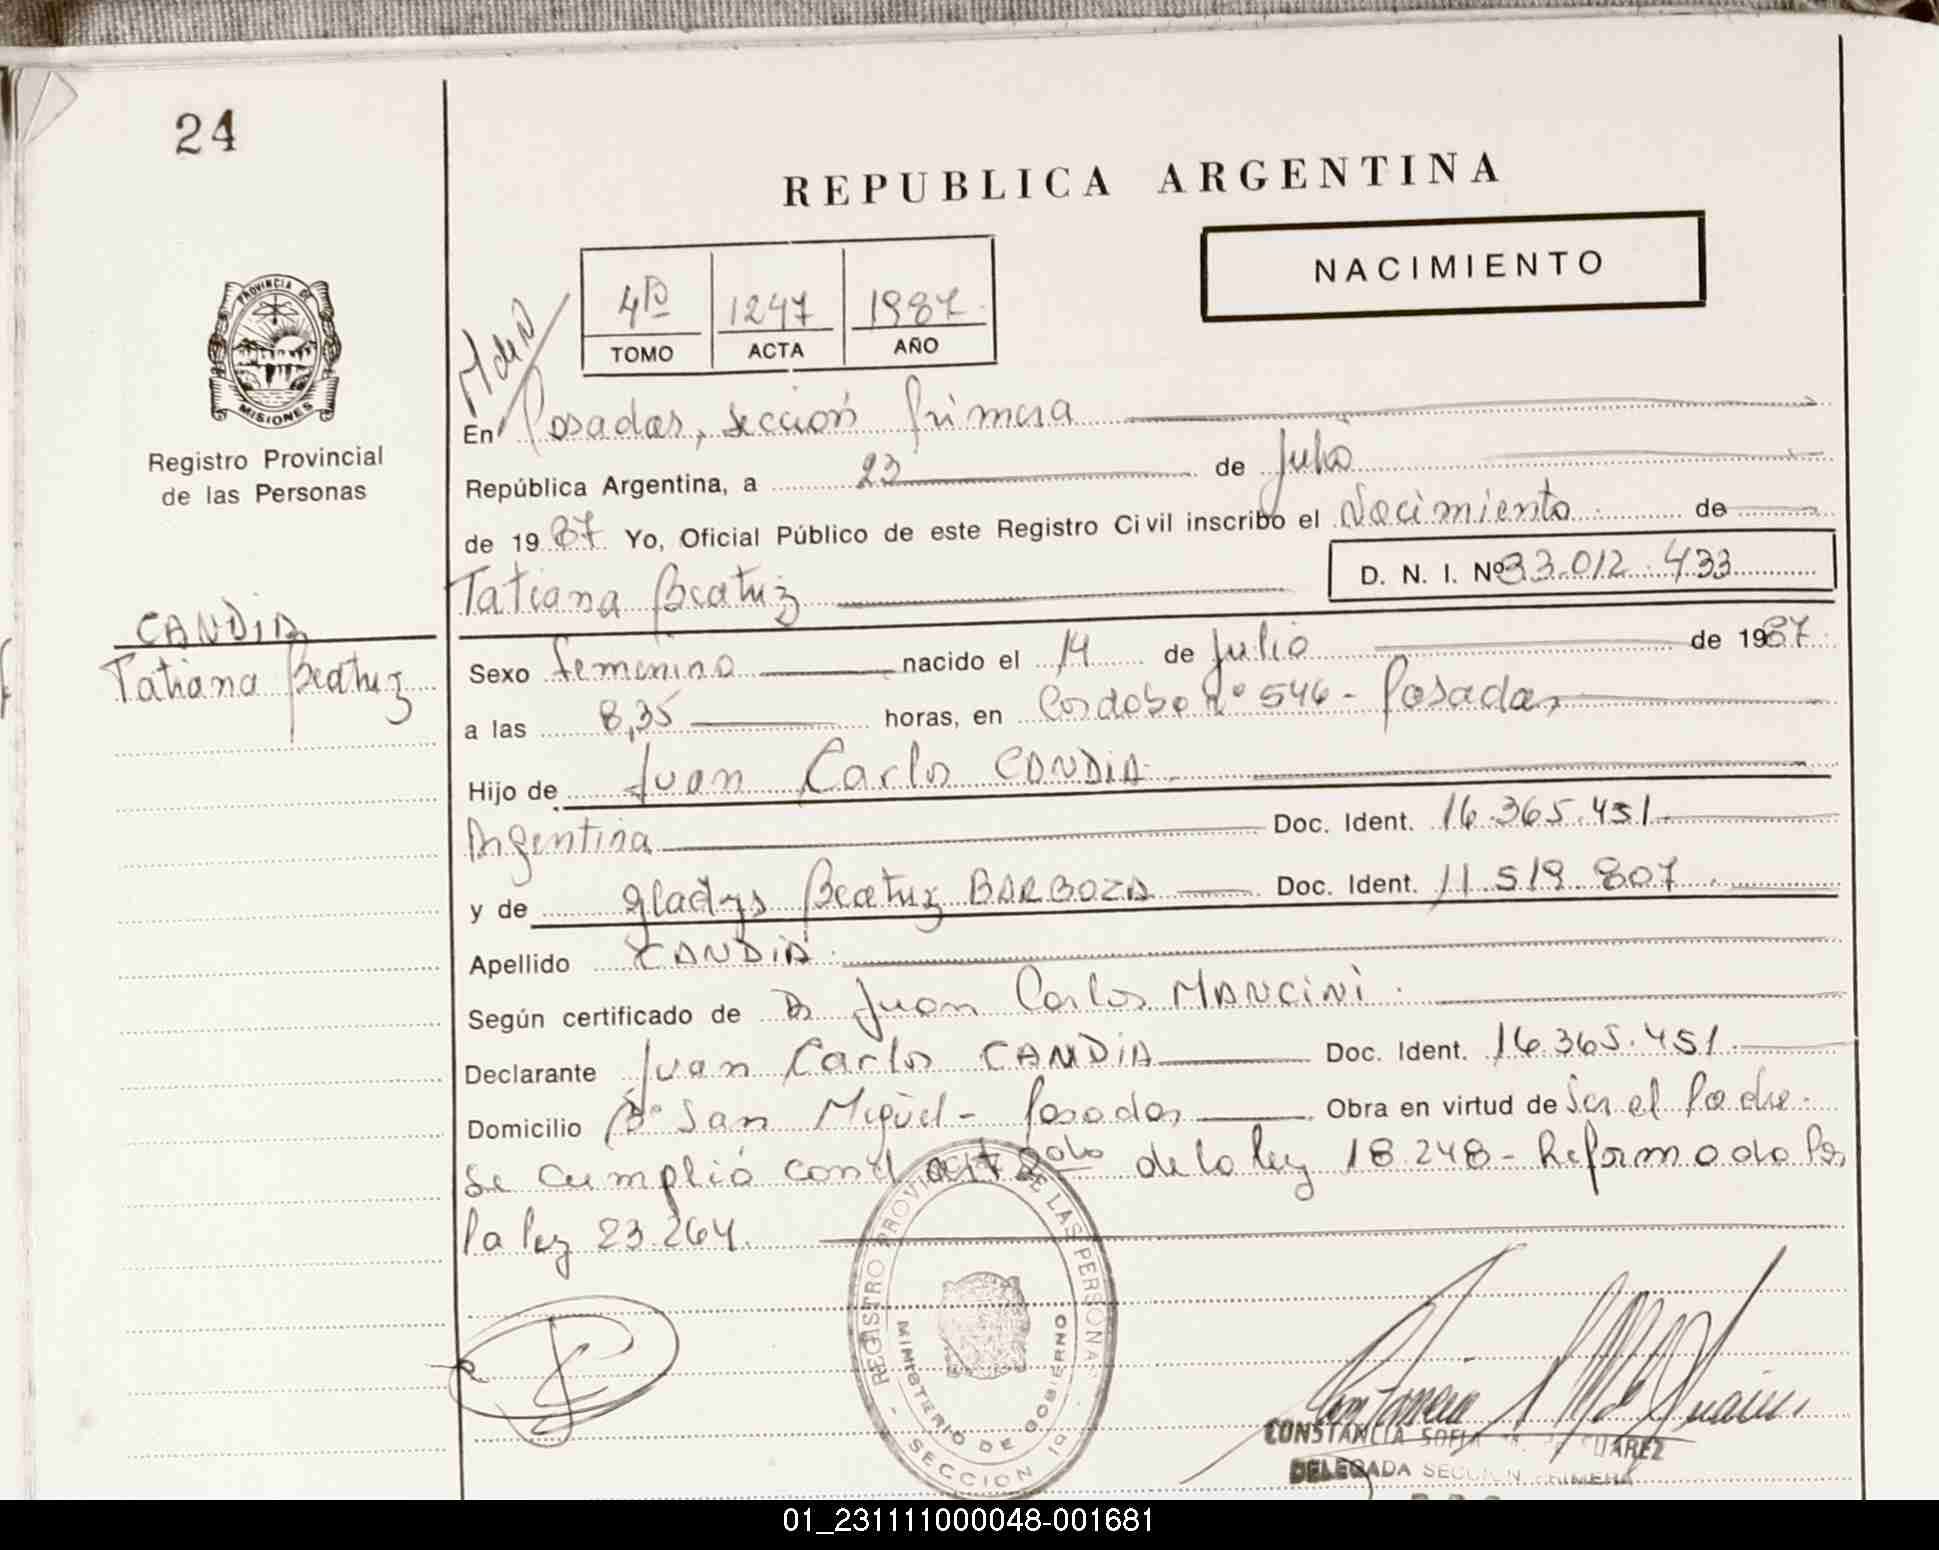 24
REPUBLICA ARGENTINA
NACIMIENTO
4to 1247 1987
TOMO ACTA AÑO
PROVINCIA DE MISIONES
Registro Provincial
de las Personas
CANDIA
Tatiana Beatriz
En Posadas, sección Primera
República Argentina, a 23 de Julio
de 1987 Yo, Oficial Público de este Registro Civil inscribo el Nacimiento de
Tatiana Beatriz D. N. I. Nº 33.012.433
Sexo femenino nacido el 14 de Julio de 1987
a las 8,35 horas, en Cordoba nº 546 - Posadas
Hijo de Juan Carlos CANDIA
Argentina Doc. Ident. 16.365.451
y de Gladys Beatriz BARBOZA Doc. Ident. 11.519.807
Apellido CANDIA
Según certificado de Dr Juan Carlos MANCINI
Declarante Juan Carlos CANDIA Doc. Ident. 16.365.451
Domicilio Bº San Miguel - Posadas Obra en virtud de ser el Padre.
Se cumplió con el art 2do de la ley 18.248 - Reformado Por
la ley 23.264.
REGISTRO PROVINCIAL DE LAS PERSONAS
MINISTERIO DE GOBIERNO
SECCION 1a
CONSTANCIA SOFIA SUAREZ
DELEGADA SECCION PRIMERA
01_231111000048-001681